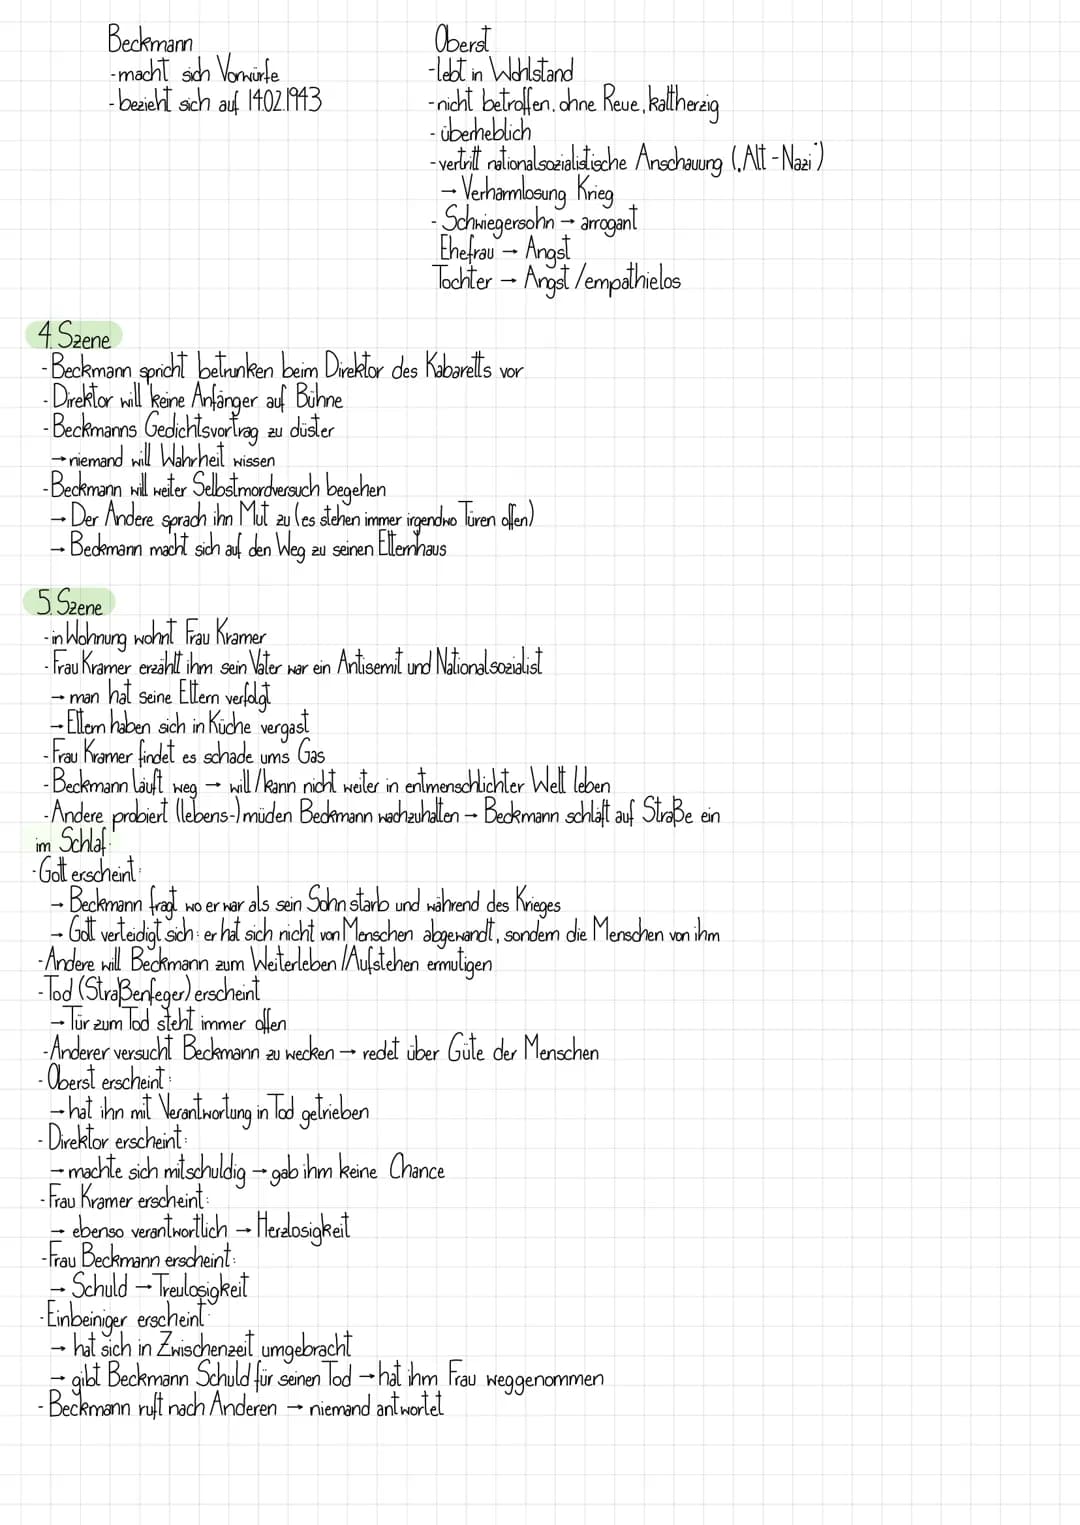 Beckmann
-macht sich Vorwürfe
-bezieht sich auf 14.02.1943
Oberst
-lebt in Wohlstand
-nicht betroffen, ohne Reue, kaltherzig
-überheblich
-vertritt nationalsozialistische Anschauung („Alt-Nazi")
→ Verharmlosung Krieg
- Schwiegersohn → arrogant
Ehefrau → Angst
Tochter → Angst/empathielos
4. Szene
-Beckmann spricht betrunken beim Direktor des Kabaretts vor
-Direktor will keine Anfänger auf Bühne
-Beckmanns Gedichtsvortrag zu düster
→niemand will Wahrheit wissen
-Beckmann will weiter Selbstmordversuch begehen
→ Der Andere sprach ihn Mut zu (es stehen immer irgendwo Türen offen)
→ Beckmann macht sich auf den Weg zu seinen Elternhaus
5. Szene
-in Wohnung wohnt Frau Kramer
-Frau Kramer erzählt ihm sein Vater war ein Antisemit und Nationalsozialist
→ man hat seine Eltern verfolgt
→ Eltern haben sich in Küche vergast
-Frau Kramer findet es schade ums Gas
-Beckmann läuft weg → will/kann nicht weiter in entmenschlichter Welt leben
-Andere probiert (lebens-)müden Beckmann wachzuhalten → Beckmann schläft auf Straße ein
im Schlaf:
-Gott erscheint:
→ Beckmann fragt wo er war als sein Sohn starb und während des Krieges
→ Gott verteidigt sich: er hat sich nicht von Menschen abgewandt, sondern die Menschen von ihm
-Andere will Beckmann zum Weiterleben/Aufstehen ermutigen
-Tod (Straßenfeger) erscheint
→ Tür zum Tod steht immer offen
-Anderer versucht Beckmann zu wecken → redet über Güte der Menschen
-Oberst erscheint:
→hat ihn mit Verantwortung in Tod getrieben
-Direktor erscheint:
→machte sich mitschuldig → gab ihm keine Chance
-Frau Kramer erscheint:
→ ebenso verantwortlich → Herzlosigkeit
-Frau Beckmann erscheint:
→ Schuld → Treulosigkeit
-Einbeiniger erscheint:
→ hat sich in Zwischenzeit umgebracht
→ gibt Beckmann Schuld für seinen Tod → hat ihm Frau weggenommen
-Beckmann ruft nach Anderen → niemand antwortet